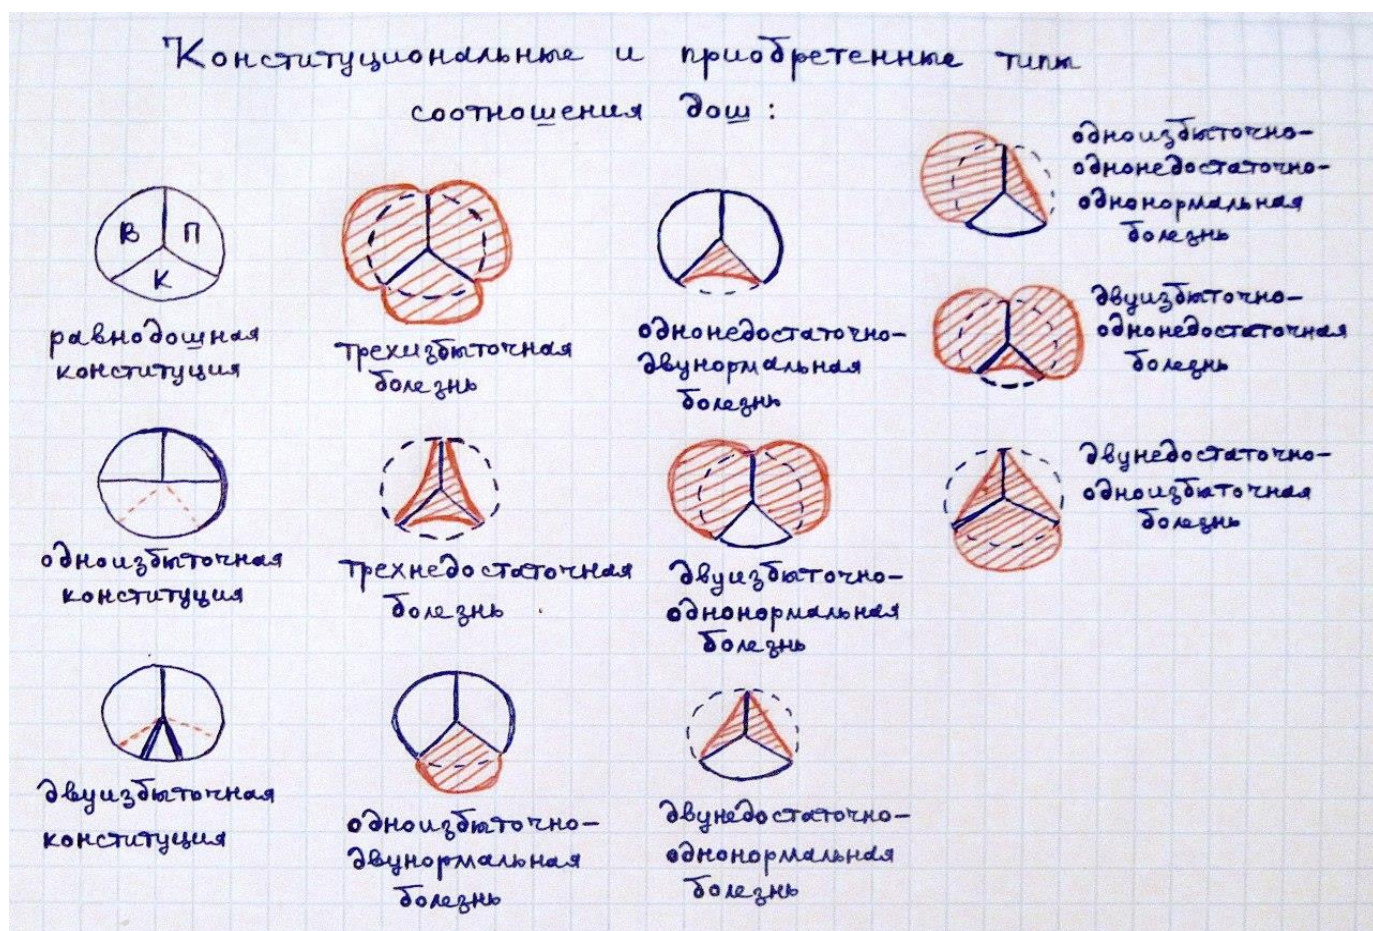 Конституциональные и приобретенные типы
соотношения дош:
В П
К
равнодошная
конституция
одноизбыточная
конституция
двуизбыточная
конституция
трехизбыточная
болезнь
трехнедостаточная
болезнь
одноизбыточно-
двунормальная
болезнь
однонедостаточно-
двунормальная
болезнь
двуизбыточно-
однонормальная
болезнь
двунедостаточно-
однонормальная
болезнь
одноизбыточно-
однонедостаточно-
однонормальная
болезнь
двуизбыточно-
однонедостаточная
болезнь
двунедостаточно-
одноизбыточная
болезнь